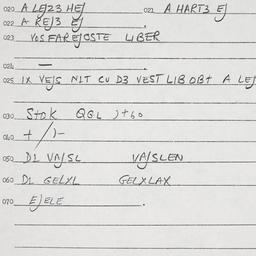 020 A LEJ23 HEJ 021 A HART3 EJ
022 A REJ3 EJ
023 VOS FAREJOSTE LIBER
024 —
025 IX VEJS NLT CU D3 VEST LIB OB+ A LEJ
030 Stok QGL )+60
040 + / )-
050 D1 VAJSL VAJSLEN
060 DL GELXL GELXLAX
070 EJELE